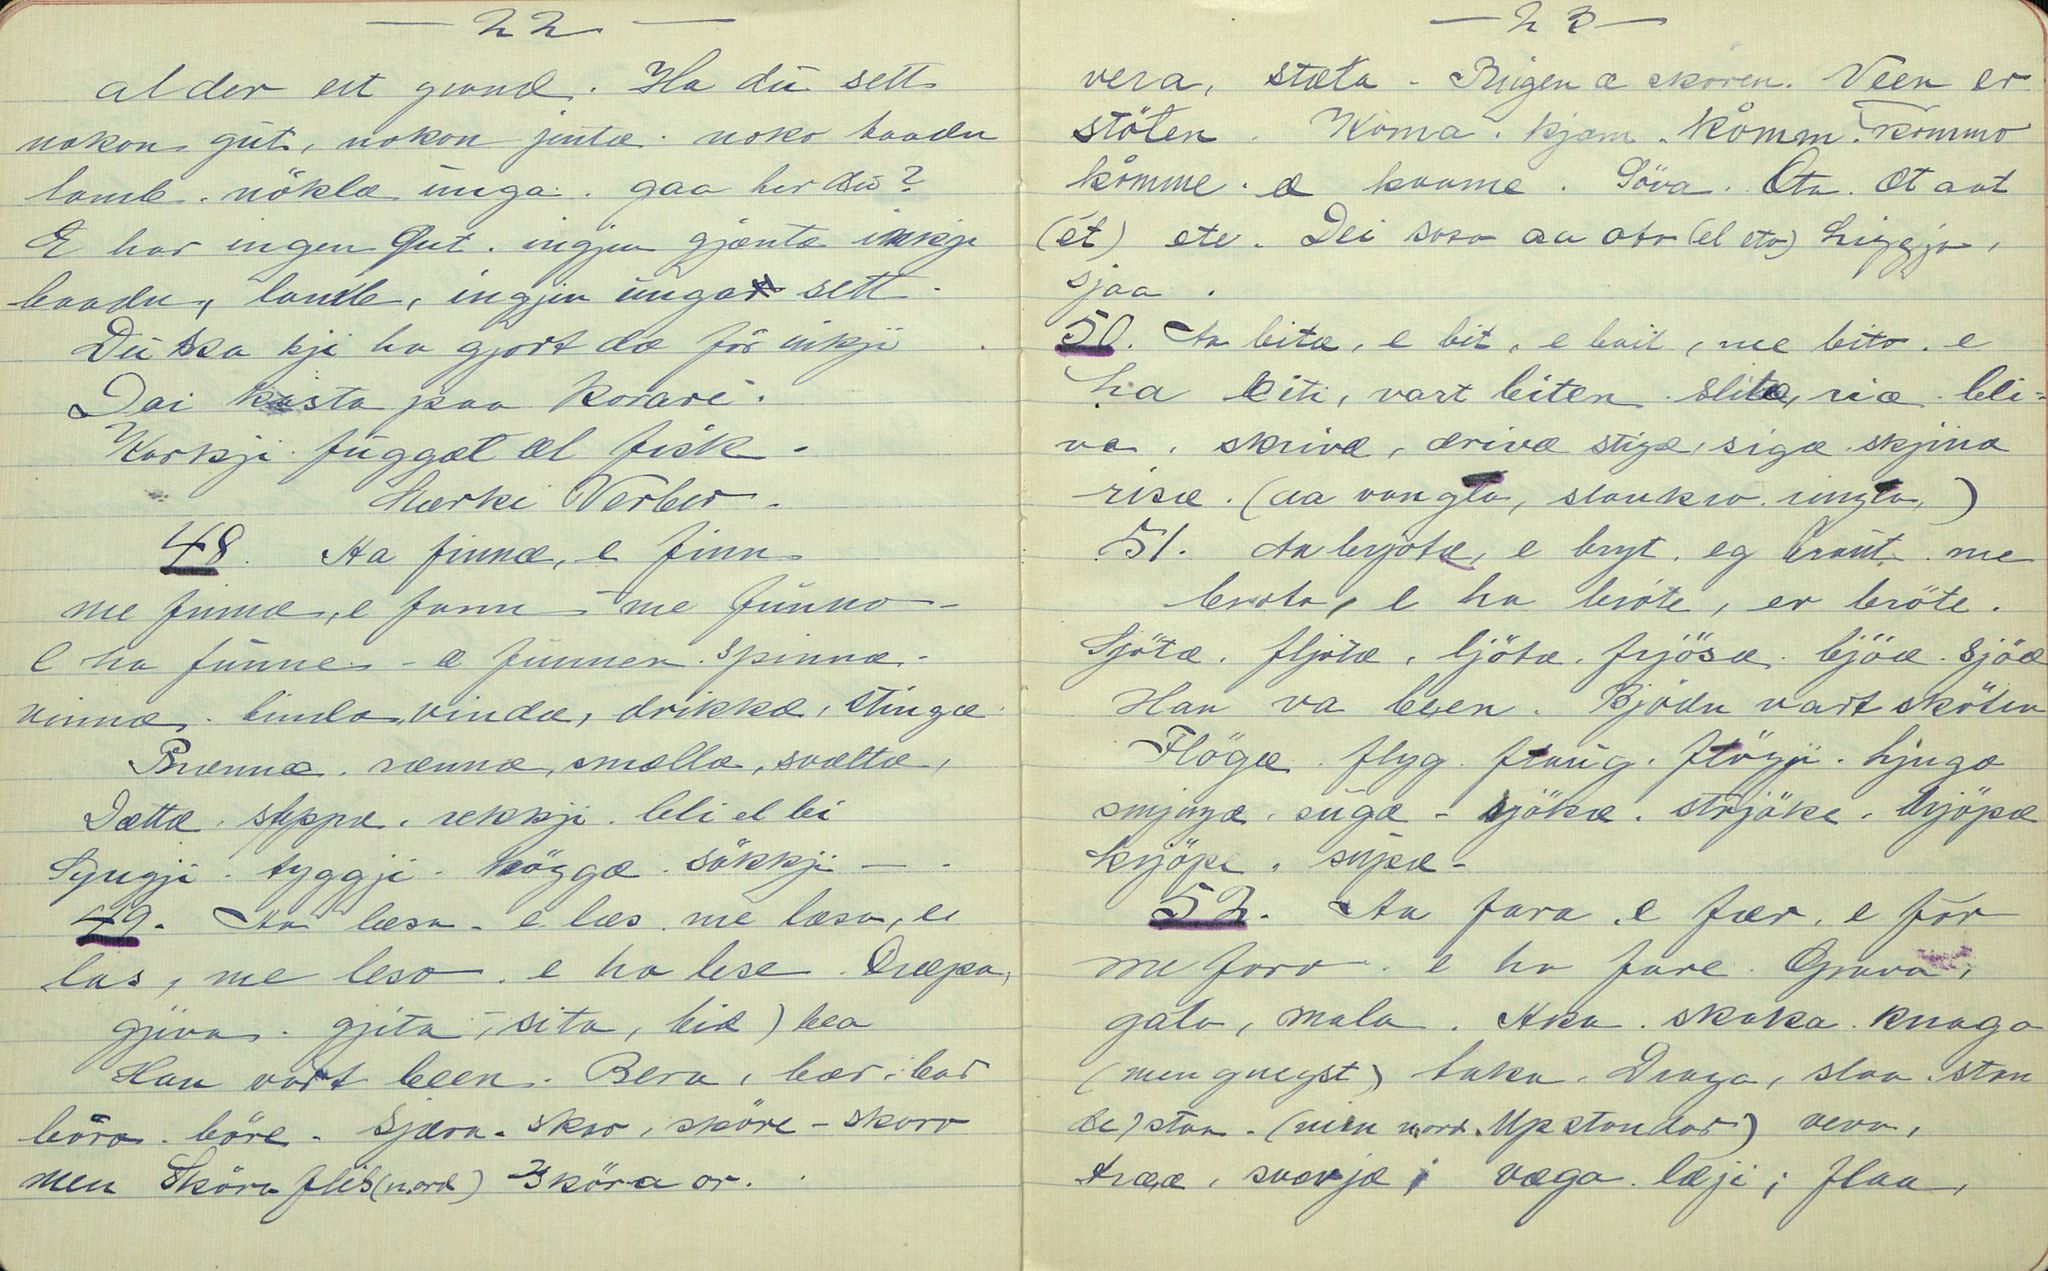 — 22 —
al der eit grand. Ha du sett
nokon gut, nokon jenta. noko baadn
lamb. nöklæ unga. gaa her du?
E har ingen Gut. ingjen gjænta inkje
baadn, lamb, ingjen unga sett.
Du ska kji ha gjort dæ för inkji
Dai kasta paa korare.
Korkji fuggæl æl fisk.
Stærke Verber.
48. Aa finnæ, e finn
me finnæ, e fann – me funno –
e ha funne – æ funnen. spinnæ –
vinnæ. binda, vindæ, drikkæ, stingæ.
Brænnæ. rænnæ, smællæ, svæltæ,
Dættæ. sleppæ. rekkji. bli el bi
Syngji. tyggji. höggæ. sökkji — .
49. Aa læsa – e læs me læsa, e
las, me leso. e ha lese. Dræpa,
gjiva. gjita – sita, bie) bea
Han vart been. Bera, bær, bar
böro. böre – Sjæra – skar, sköre – skoro
men Sköra flis (nord) Sköra or.
— 23 —
vera, stæla – Ringen æ skoren. Veen er
stölen. Koma. kjæm. Kåmm. kommo
kåmme. æ kaame. Söva. Eta. æt aat
(ét) ete. Dei soso aa oto (el eto) Liggja,
sjaa.
50. Aa bitæ, e bit, e bait, me bito. e
ha biti, vart biten. slitæ, riæ. bli-
va. skrivæ, drivæ stigæ, sigæ skjina
risæ. (aa vangla, slaukra. ringla,)
51. Aa brjotæ, e bryt. eg braut. me
broto, e ha bróte, er bröte.
Sjötæ. fljotæ, ljötæ. frjösæ. bjöæ. sjöæ
Han va been. Bjödn vart sköten
Flögæ. flyg. flaug. flögji. Ljuga
smjugæ. sugæ – rjökæ. strjökæ. drjöpæ
krjöpæ. supæ –
52. Aa fara, e fær, e fór
me foro. e ha fare. Grava,
gala, mala. Aka. skaka. knaga
(men gnegst) taka. Draga, slaa. stan
de) staa. (men nord. Upstandar) vera,
træe, sværja; væga. læji; flaa,